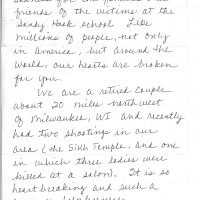 friends of the victims at the
Sandy Hook school. Like
millions of people, not only
in America, but around the
world, our hearts are broken
for you.
We are a retired couple
about 20 miles northwest
of Milwaukee, WI and recently
had two shootings in our
area (the Sikh Temple, and one
in which three bodies were
killed at a salon). It is so
heart breaking and such a